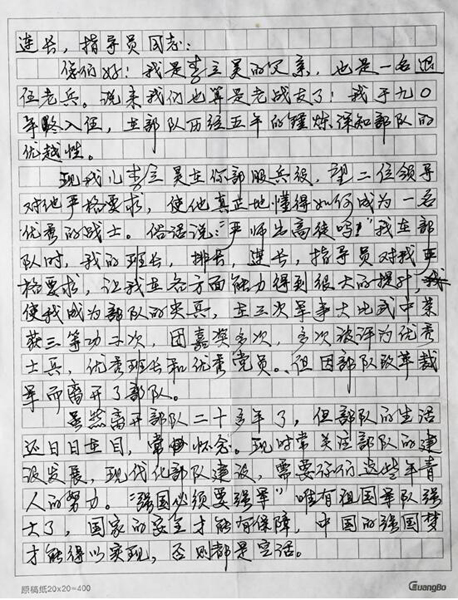 连长，指导员同志：
你们好！我是李立昊的父亲，也是一名退
伍老兵。说来我们也算是老战友了！我于九〇
年踏入伍，在部队历经五年的锤炼深知部队的
优越性。
现我儿李立昊在你部服兵役，望二位领导
对他严格要求，使他真正地懂得如何成为一名
优秀的战士。俗话说："严师出高徒吗"我在部
队时，我的班长，排长，连长，指导员对我严
格要求，让我在各方面能力得到很大的提升，
使我成为部队的尖兵，在三次军事大比武中荣
获三等功二次，团嘉奖多次，多次被评为优秀
士兵，优秀班长和优秀党员。但因部队改革裁
军而离开了部队。
虽然离开部队二十多年了，但部队的生活
还日日在目，常怀念。现时常关注部队的建
设发展，现代化部队建设，需要你们这些年青
人的努力。"强国必须要强军"唯有祖国军队强
大了，国家的安全才能有保障，中国的强国梦
才能得以实现，否则都是空话。
原稿纸20x20=400
GuangBo